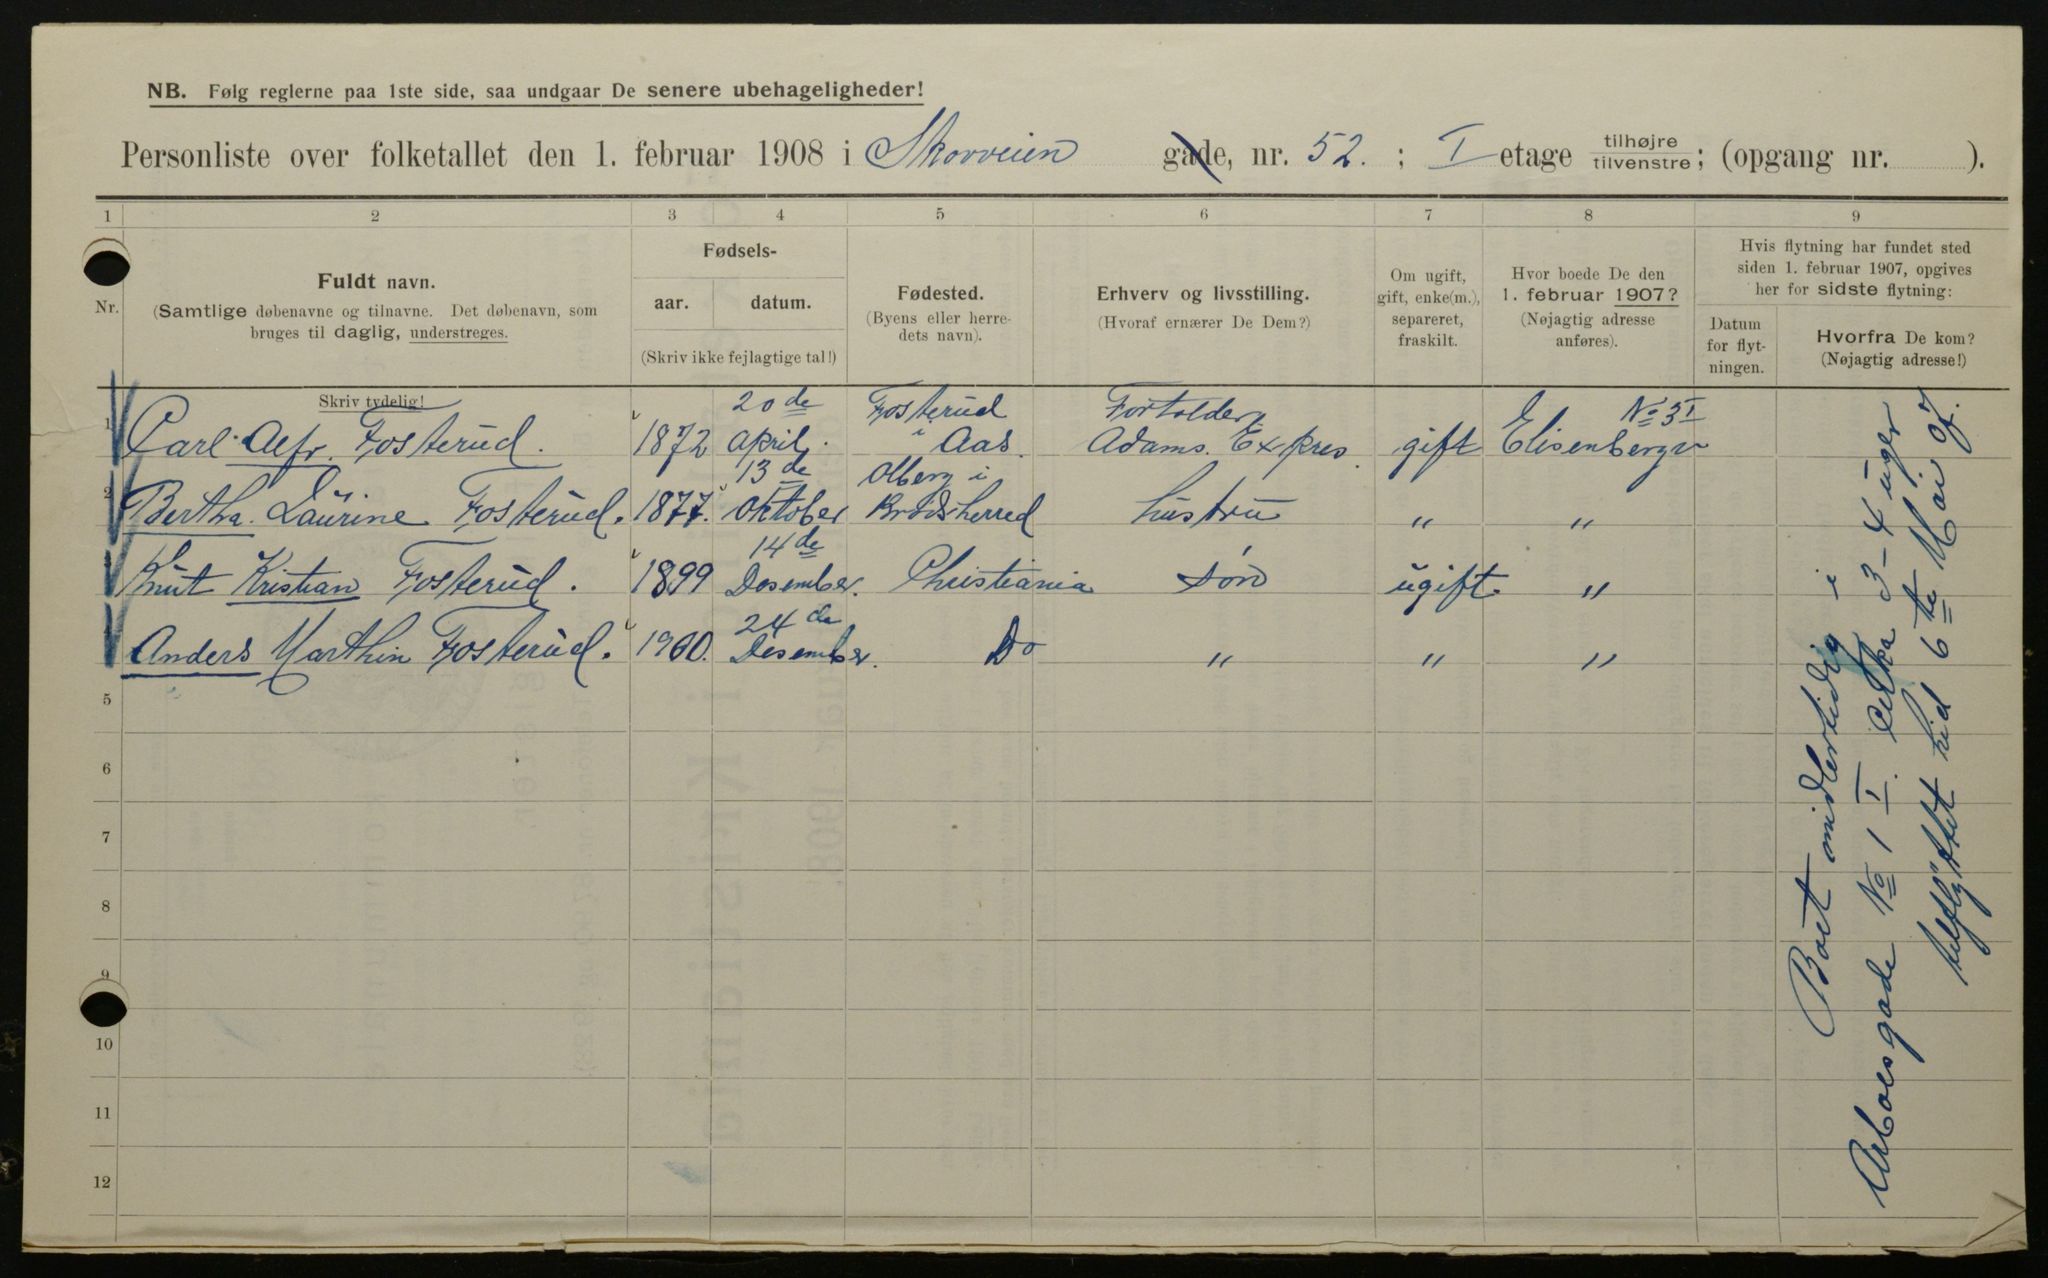 NB. Følg reglerne paa 1ste side, saa undgaar De senere ubehageligheder!
Personliste over folketallet den 1. februar 1908 i Skovveien gade, nr. 52. ; I etage tilhøjre tilvenstre; (opgang nr. ).
1 2 3 4 5 6 7 8 9
Nr.
Fuldt navn.
(Samtlige døbenavne og tilnavne. Det døbenavn, som
bruges til daglig, understreges.
Skriv tydelig!
Fødsels-
aar. datum.
(Skriv ikke fejlagtige tal!)
Fødested.
(Byens eller herre-
dets navn).
Erhverv og livsstilling.
(Hvoraf ernærer De Dem?)
Om ugift,
gift, enke(m.),
separeret,
fraskilt.
Hvor boede De den
1. februar 1907?
(Nøjagtig adresse
anføres).
Hvis flytning har fundet sted
siden 1. februar 1907, opgives
her for sidste flytning:
Datum
for flyt-
ningen.
Hvorfra De kom?
(Nøjagtig adresse!)
20de Fosterud Fortolder No 5 I
1 Carl Alfr. Fosterud. 1872 April. i Aas. Adams. Expres. gift Elisenbergv
13de Olberg i
2 Bertha. Laurine Fosterud. 1877. Oktober Krodsherred hustru " "
14de
3 Knut Kristian Fosterud. 1899 Desember. Christiania søn ugift "
24de
4 Anders Marthin Fosterud. 1900. Desember. Do " " "
5
6
7
8
9
10
11
12
Boet midlertidig i
Arboesgade No 1 I. cirka 3-4 uger
tilflyttet hid 6te Mai 07.